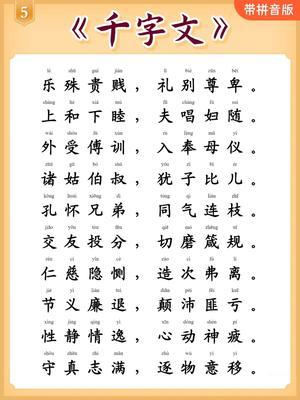 5
带拼音版
《千字文》
lè shū guì jiàn lǐ bié zūn bēi
乐殊贵贱，礼别尊卑。
shàng hé xià mù fū chàng fù suí
上和下睦，夫唱妇随。
wài shòu fù xùn rù fèng mǔ yí
外受傅训，入奉母仪。
zhū gū bó shū yóu zǐ bǐ ér
诸姑伯叔，犹子比儿。
kǒng huái xiōng dì tóng qì lián zhī
孔怀兄弟，同气连枝。
jiāo yǒu tóu fèn qiē mó zhēn guī
交友投分，切磨箴规。
rén cí yǐn cè zào cì fú lí
仁慈隐恻，造次弗离。
jié yì lián tuì diān pèi fěi kuī
节义廉退，颠沛匪亏。
xìng jìng qíng yì xīn dòng shén pí
性静情逸，心动神疲。
shǒu zhēn zhì mǎn zhú wù yì yí
守真志满，逐物意移。